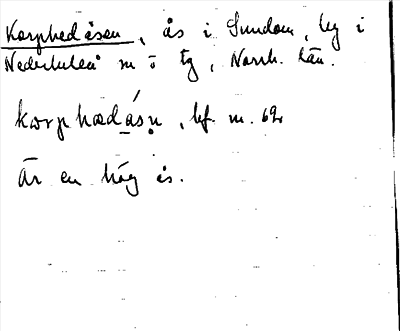 Korphedåsen, ås i Sundom, by i
Nederluleå sn o tg, Norrb. län.
kɷrphædåsn̥, bf. m. 62
Är en hög ås.